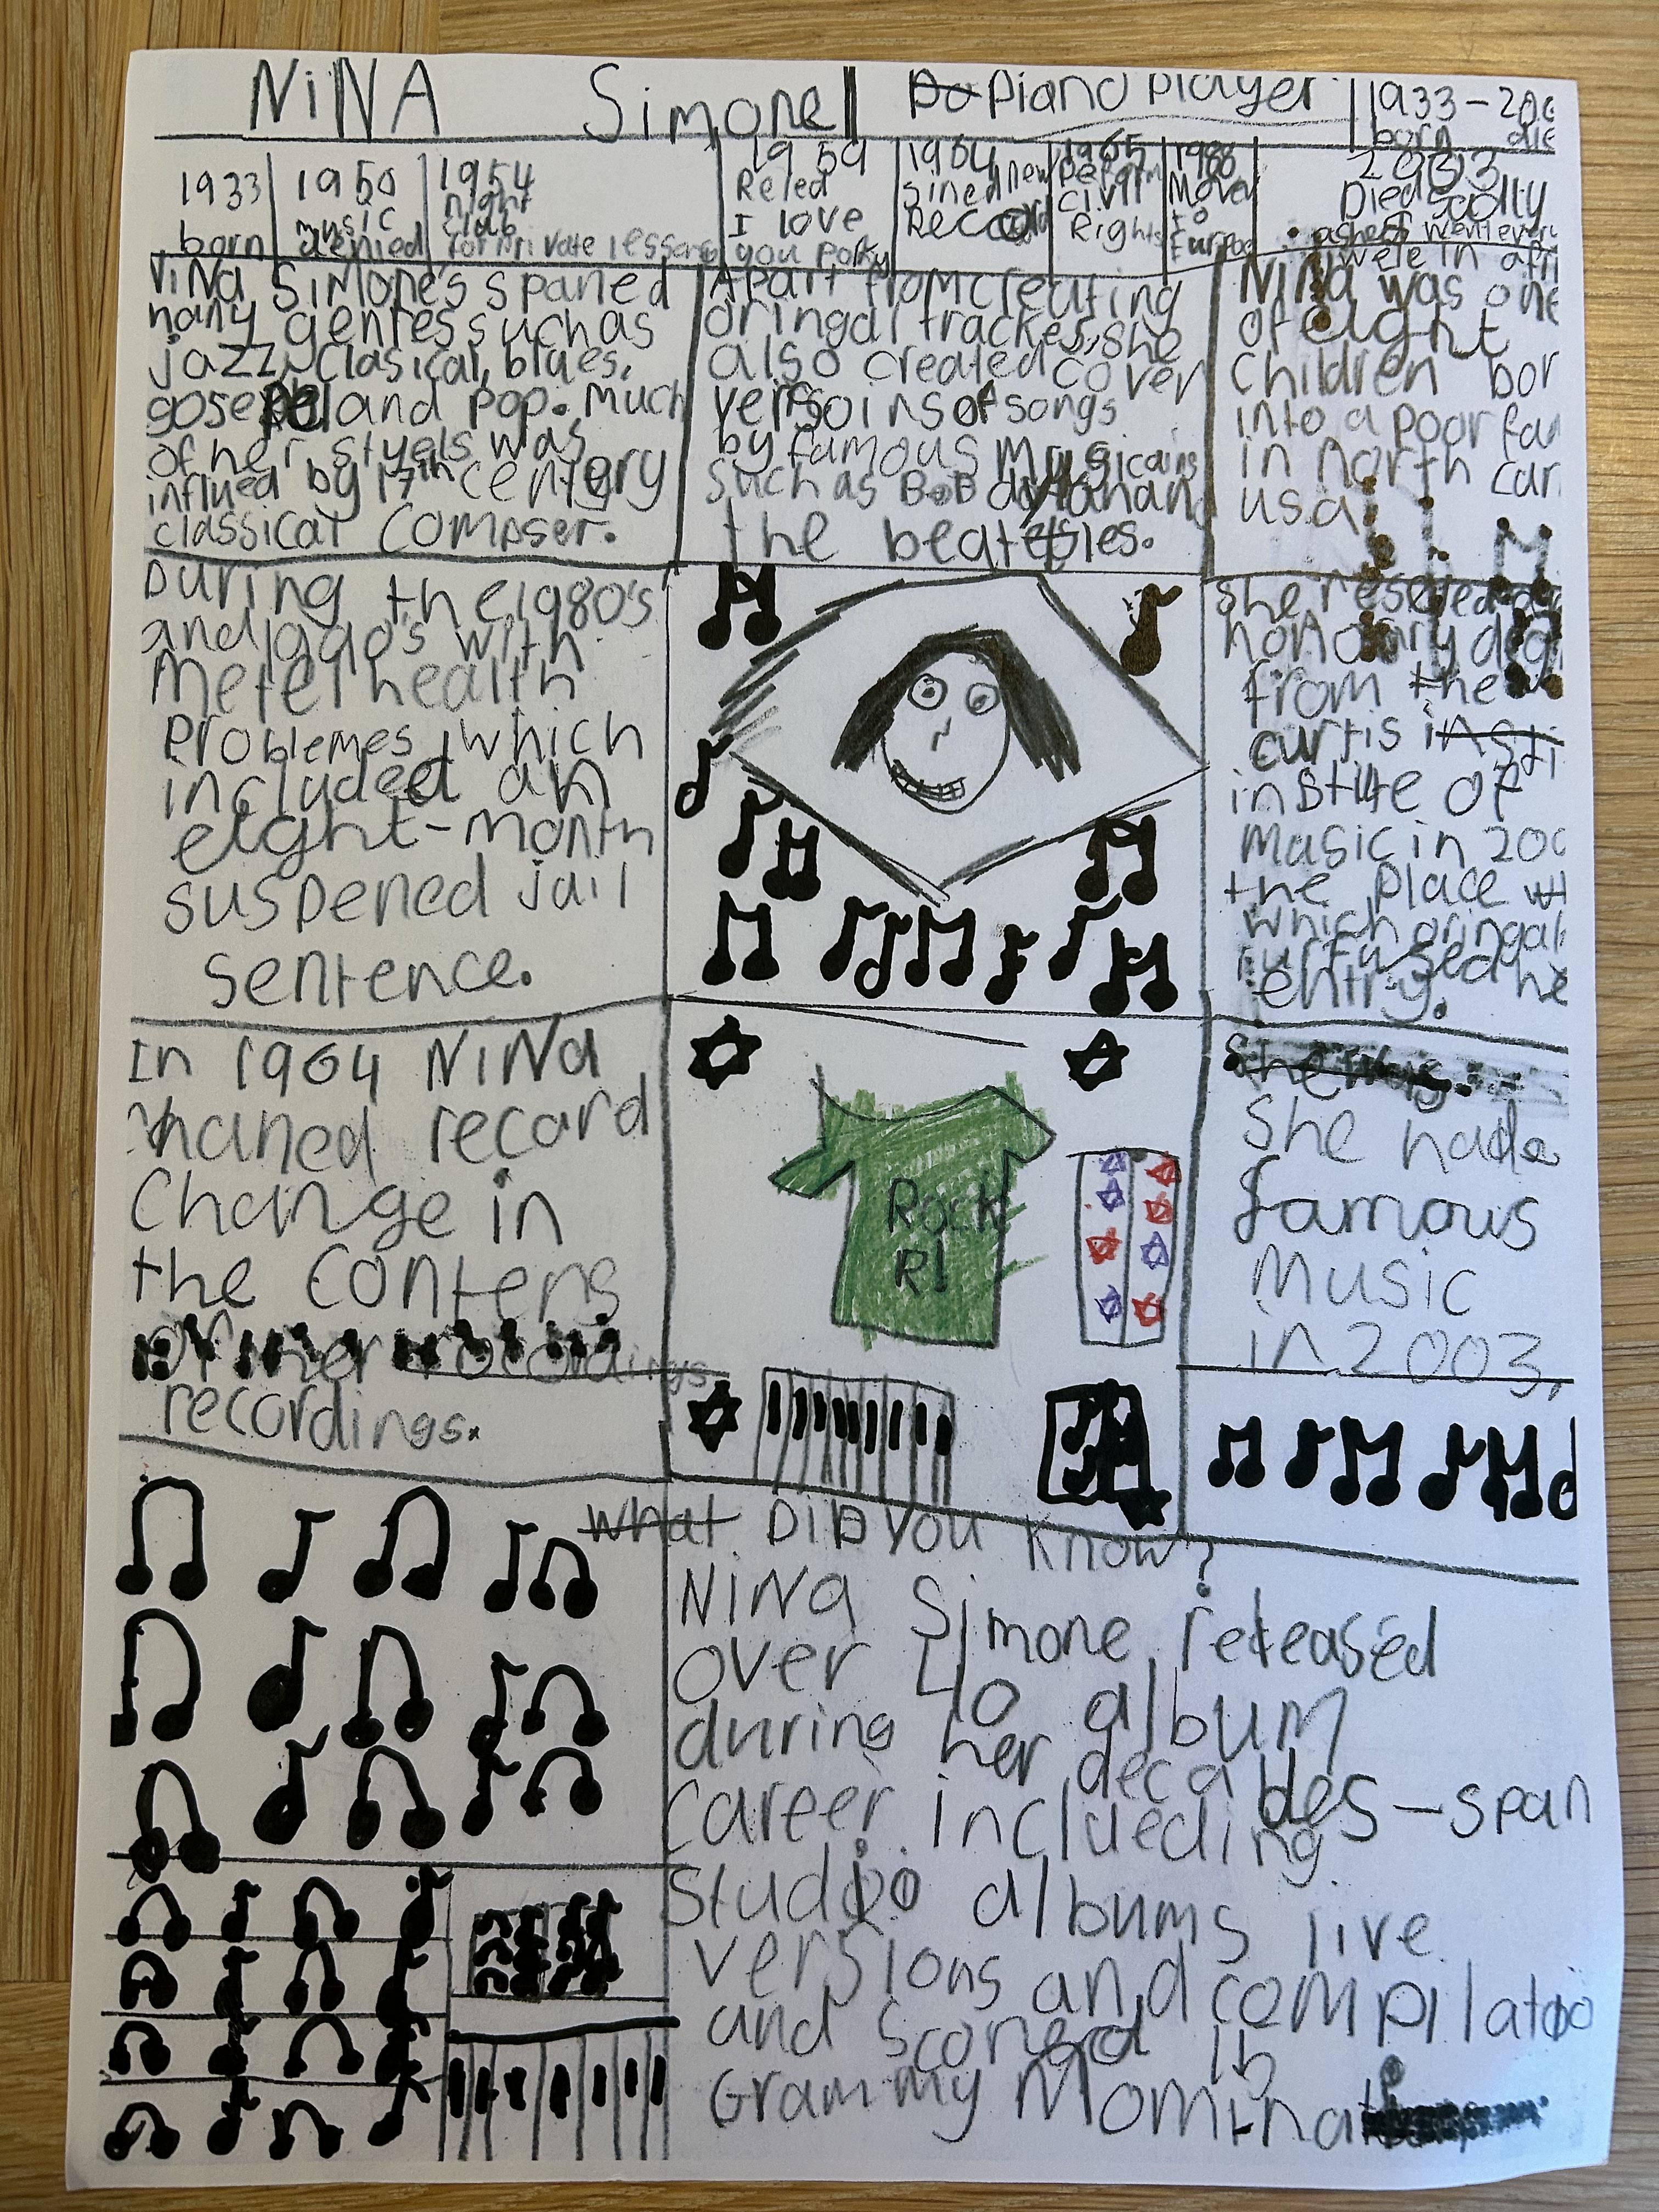 NiNA Simone
Piano Player
1933-200
born die
1933
born
1950
music
denied
1954
night
club
for private lessons
1959
Reled
I love
you porky
1964
sined new
Record
1965
Perform
civil
Rights
1988
Moved
to
Europe
2003
Died sadly
ashes went every
were in afri
NiNA SiMone's spaned
many genres such as
jazz, clasical, blues,
gosepel and pop. Much
of her styels was
influed by 17th century
classical Compser.
Apart from creating
oringal trackes, she
also created cover
versoins of songs
by famous musicains
such as BoB dylan and
the beatles.
NiNa was one
of eight
children bor
into a poor fam
in north car
usa
During the 1980's
and 1990s with
Metel health
Problemes which
included an
eight-month
suspened jail
sentence.
She reseved an
honorary deg
from the
curtis insti
instute of
music in 200
the place wh
which oringal
rufused he
entry.
In 1964 NiNa
chaned record
Change in
the contens
of her recordings
recordings.
Rock
R!
She was
She hade
famous
Music
in 2003,
what DiD you know?
NiNa Simone released
over 40 album
during her decades-span
career including
Studio albums live
versions and compilatoo
and scored 15
Grammy Nominat